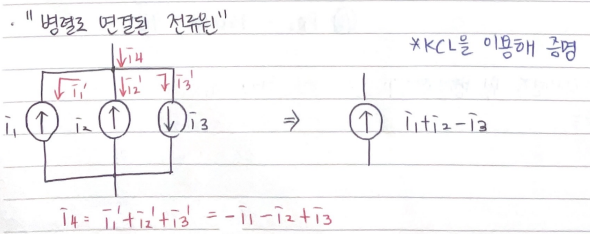 · "병렬로 연결된 전류원"
*KCL을 이용해 증명
↓i4
i1' ↓i2' i3'
i1 i2 i3 ⇒ i1+i2-i3
i4 = i1'+i2'+i3' = -i1-i2+i3